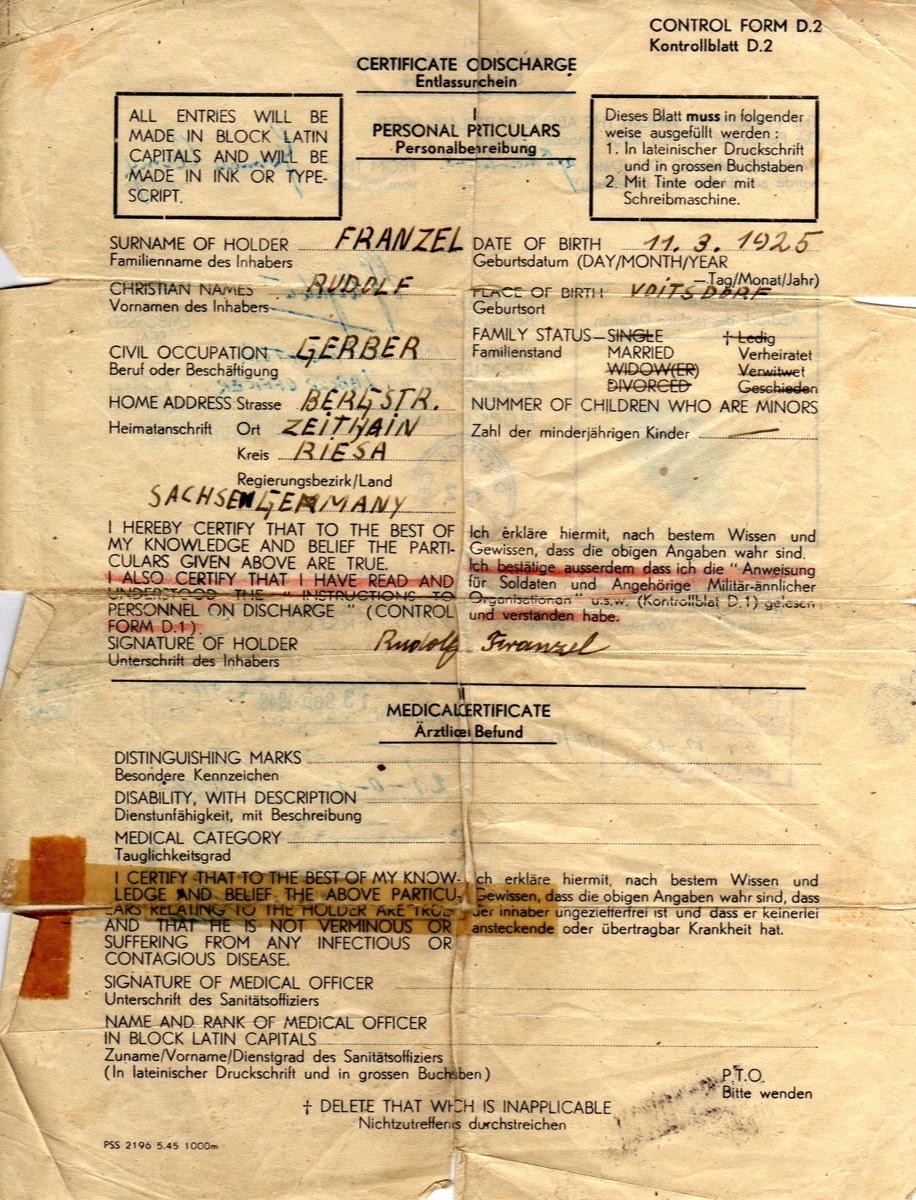 CONTROL FORM D.2
Kontrollblatt D.2
CERTIFICATE O DISCHARGE
Entlassurchein
ALL ENTRIES WILL BE
MADE IN BLOCK LATIN
CAPITALS AND WILL BE
MADE IN INK OR TYPE-
SCRIPT.
I
PERSONAL PRTICULARS
Personalbehreibung
Dieses Blatt muss in folgender
weise ausgefüllt werden :
1. In lateinischer Druckschrift
und in grossen Buchstaben
2. Mit Tinte oder mit
Schreibmaschine.
SURNAME OF HOLDER FRANZEL
Familienname des Inhabers
CHRISTIAN NAMES RUDOLF
Vornamen des Inhabers
CIVIL OCCUPATION GERBER
Beruf oder Beschäftigung
HOME ADDRESS Strasse BERGSTR.
Heimatanschrift Ort ZEITHAIN
Kreis RIESA
Regierungsbezirk/Land
SACHSEN GERMANY
DATE OF BIRTH 11. 3. 1925
Geburtsdatum (DAY/MONTH/YEAR
—Tag/Monat/Jahr)
PLACE OF BIRTH VOITSDORF
Geburtsort
FAMILY STATUS—SINGLE † Ledig
Familienstand MARRIED Verheiratet
WIDOW(ER) Verwitwet
DIVORCED Geschieden
NUMMER OF CHILDREN WHO ARE MINORS
Zahl der minderjährigen Kinder —
I HEREBY CERTIFY THAT TO THE BEST OF
MY KNOWLEDGE AND BELIEF THE PARTI-
CULARS GIVEN ABOVE ARE TRUE.
I ALSO CERTIFY THAT I HAVE READ AND
UNDERSTOOD THE " INSTRUCTIONS TO
PERSONNEL ON DISCHARGE " (CONTROL
FORM D.1)
Ich erkläre hiermit, nach bestem Wissen und
Gewissen, dass die obigen Angaben wahr sind.
Ich bestätige ausserdem dass ich die " Anweisung
für Soldaten und Angehörige Militär-ännlicher
Organisationen " u.s.w. (Kontrollblat D.1) gelesen
und verstanden habe.
SIGNATURE OF HOLDER Rudolf Franzel
Unterschrift des Inhabers
II
MEDICAL ERTIFICATE
Ärztlicer Befund
DISTINGUISHING MARKS
Besondere Kennzeichen
DISABILITY, WITH DESCRIPTION
Dienstunfähigkeit, mit Beschreibung
MEDICAL CATEGORY
Tauglichkeitsgrad
I CERTIFY THAT TO THE BEST OF MY KNOW-
LEDGE AND BELIEF THE ABOVE PARTICU-
LARS RELATING TO THE HOLDER ARE TRUE
AND THAT HE IS NOT VERMINOUS OR
SUFFERING FROM ANY INFECTIOUS OR
CONTAGIOUS DISEASE.
Ich erkläre hiermit, nach bestem Wissen und
Gewissen, dass die obigen Angaben wahr sind, dass
der inhaber ungezieferfrei ist und dass er keinerlei
ansteckende oder übertragbar Krankheit hat.
SIGNATURE OF MEDICAL OFFICER
Unterschrift des Sanitätsoffiziers
NAME AND RANK OF MEDICAL OFFICER
IN BLOCK LATIN CAPITALS
Zuname/Vorname/Dienstgrad des Sanitätsoffiziers
(In lateinischer Druckschrift und in grossen Buchsben)
P.T.O.
Bitte wenden
† DELETE THAT WHCH IS INAPPLICABLE
Nichtzutreffends durchstreichen
PSS 2196 5.45 1000m